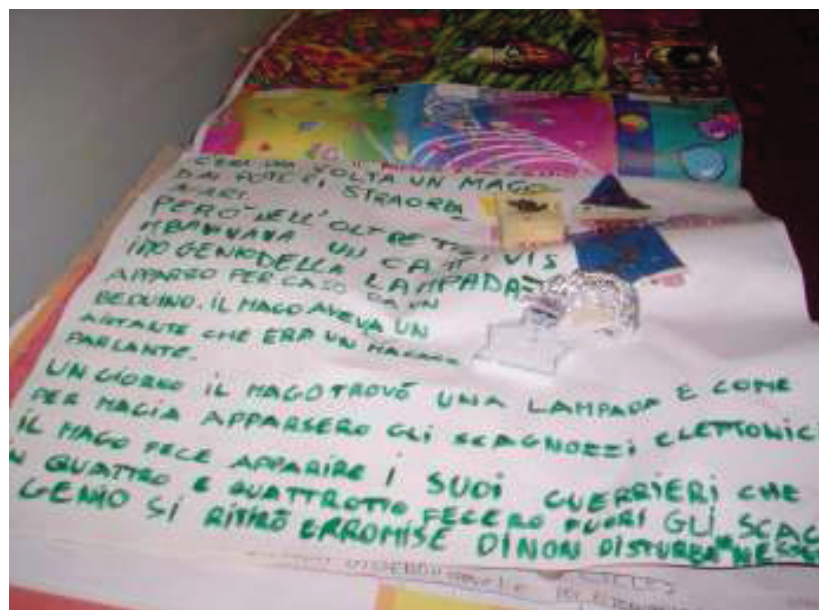 C'ERA UNA VOLTA UN MAGO
DAI POTERI STRAORDI
NARI.
PERÒ NELL'OLTRE
UN CATTIVIS
IMO GENIO DELLA LAMPADA
APPARSO PER CASO DA UN
BEDUINO. IL MAGO AVEVA UN
CHE ERA UN
PARLANTE.
UN GIORNO IL MAGO TROVÒ UNA LAMPADA E COME
PER MAGIA APPARSERO GLI SCAGNOZZI ELETTONICI
IL MAGO FECE APPARIRE I SUOI GUERRIERI CHE
IN QUATTRO E QUATTROTTO FECERO FUORI GLI SCAG
GENIO SI RITIRÒ E PROMISE DI NON DISTURBA